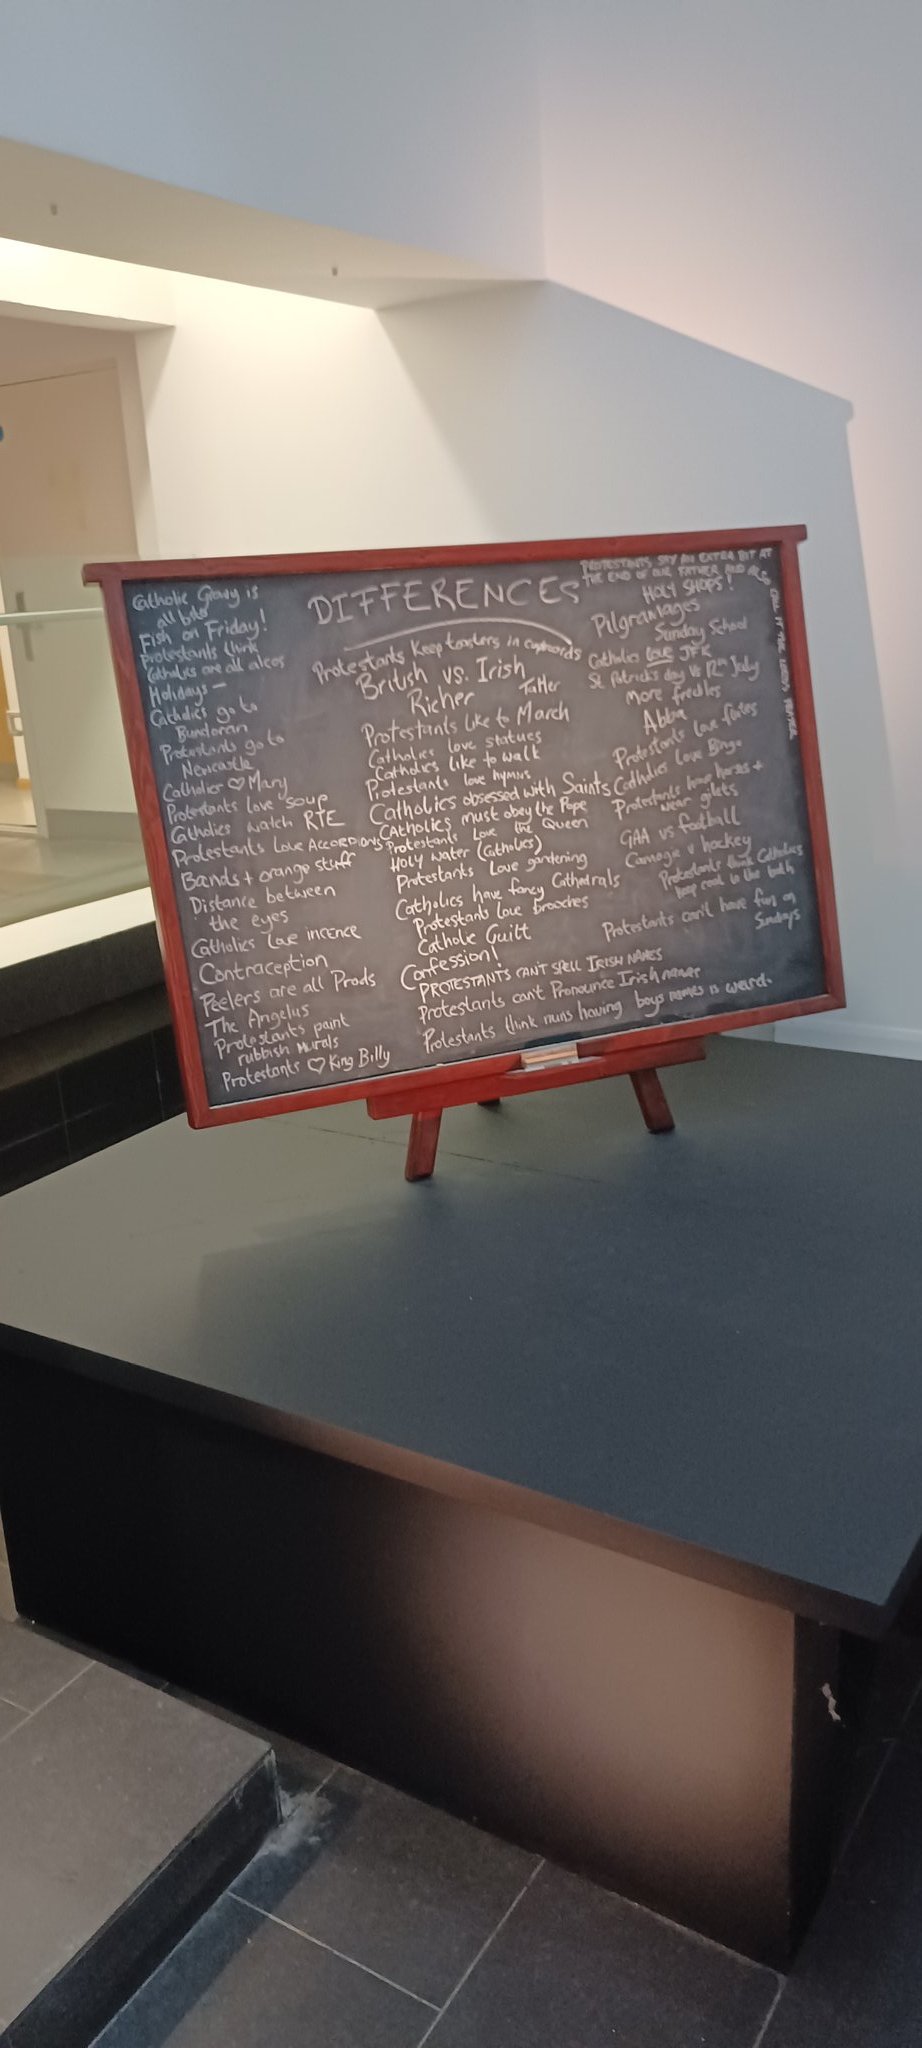 DIFFERENCES
Catholic Gravy is
all bits
Fish on Friday!
Protestants think
Catholics are all alcos
Holidays –
Catholics go to
Bundoran
Protestants go to
Newcastle
Catholics ♡ Mary
Protestants love soup
Catholics watch RTE
Protestants Love Accordions
Bands + orange stuff
Distance between
the eyes
Catholics love incence
Contraception
Peelers are all Prods
The Angelus
Protestants paint
rubbish Murals
Protestants ♡ King Billy
Protestants Keep toasters in cupboards
British vs. Irish
Richer Taller
Protestants like to March
Catholics love statues
Catholics like to walk
Protestants love hymns
Catholics obsessed with Saints
Catholics must obey the Pope
Protestants Love the Queen
Holy Water (Catholics)
Protestants Love gardening
Catholics have fancy Cathedrals
Protestants love brooches
Catholic Guilt
Confession!
PROTESTANTS CAN'T SPELL IRISH NAMES
Protestants can't Pronounce Irish names
Protestants think nuns having boys names is weird.
PROTESTANTS SAY AN EXTRA BIT AT
THE END OF OUR FATHER AND ALSO
CALL IT THE LORDS PRAYER
HOLY SHOPS!
Pilgramages
Sunday School
Catholics love JFK
St Patrick's day Vs 12th July
More freckles
Abba
Protestants love flutes
Catholics Love Bingo
Protestants have horses +
wear gilets
GAA vs football
Camogie v hockey
Protestants think Catholics
keep coal in the bath
Protestants can't have fun on
Sundays